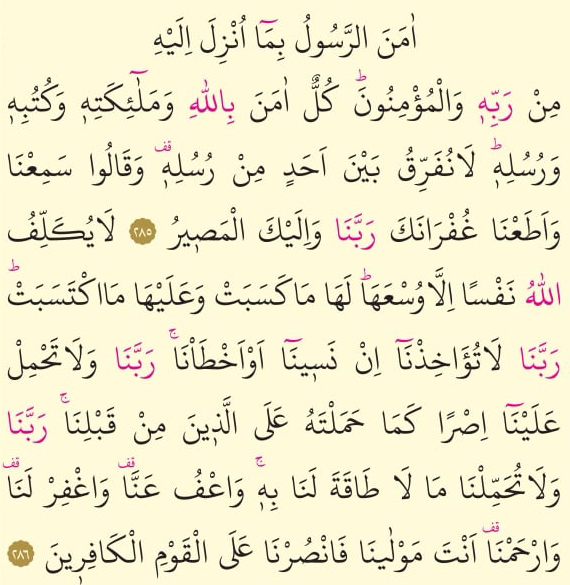 اٰمَنَ الرَّسُولُ بِمَٓا اُنْزِلَ اِلَيْهِ
مِنْ رَبِّه۪ وَالْمُؤْمِنُونَۜ كُلٌّ اٰمَنَ بِاللّٰهِ وَمَلٰٓئِكَتِه۪ وَكُتُبِه۪
وَرُسُلِه۪ۜ لَا نُفَرِّقُ بَيْنَ اَحَدٍ مِنْ رُسُلِه۪۠ وَقَالُوا سَمِعْنَا
وَاَطَعْنَا غُفْرَانَكَ رَبَّنَا وَاِلَيْكَ الْمَص۪يرُ ﴿٢٨٥﴾ لَا يُكَلِّفُ
اللّٰهُ نَفْسًا اِلَّا وُسْعَهَاۜ لَهَا مَا كَسَبَتْ وَعَلَيْهَا مَا اكْتَسَبَتْۜ
رَبَّنَا لَا تُؤَاخِذْنَٓا اِنْ نَس۪ينَٓا اَوْ اَخْطَأْنَاۚ رَبَّنَا وَلَا تَحْمِلْ
عَلَيْنَٓا اِصْرًا كَمَا حَمَلْتَهُ عَلَى الَّذ۪ينَ مِنْ قَبْلِنَاۚ رَبَّنَا
وَلَا تُحَمِّلْنَا مَا لَا طَاقَةَ لَنَا بِه۪ۚ وَاعْفُ عَنَّا۠ وَاغْفِرْ لَنَا۠
وَارْحَمْنَا۠ اَنْتَ مَوْلٰينَا فَانْصُرْنَا عَلَى الْقَوْمِ الْكَافِر۪ينَ ﴿٢٨٦﴾